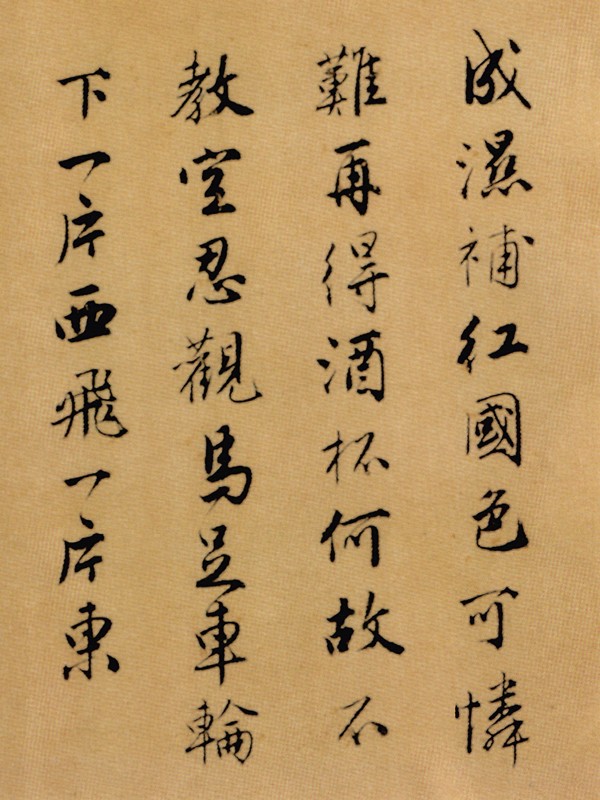 成濕補紅國色可憐
難再得酒杯何故不
教空忍觀馬足車輪
下一片西飛一片東